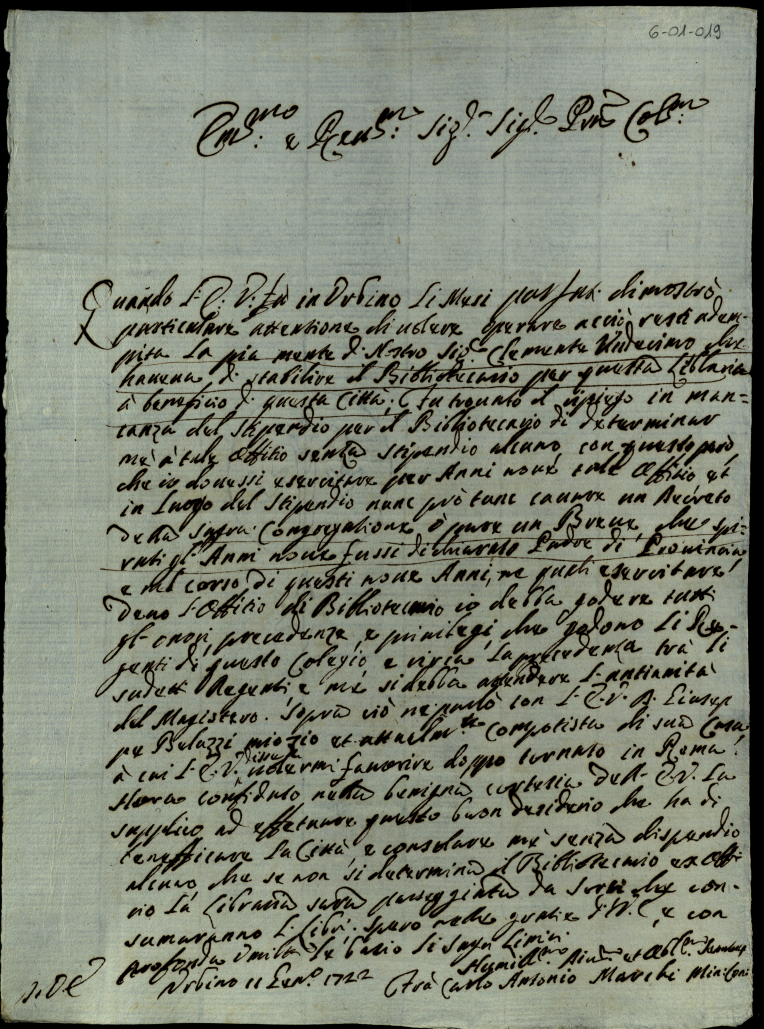 6-01-019
Em.mo e Rev.mo Sig.r Sig.r P.rone Col.mo
Quando L'E. V. fù in Urbino li Mesi passati dimostrò
particolare attentione di volere operare acciò resti adem=
pita la pia mente di Nostro Sig.re Clemente Undecimo che
haveva di stabilire il Bibliotecario per questa Libraria
à beneficio di questa Città. Fu trovato il ripiego in man=
canza del stipendio per il Bibliotecario di determinar
me à tale Offitio senza stipendio alcuno, con questo però
che io dovessi esercitare per Anni nove tale Offitio et
in luogo del stipendio nunc prò tunc cavare un Decreto
della Sagra Congregatione ò pure un Breve che spi=
rati gl'Anni nove fussi dichiarato Padre di Provincia
e nel corso di questi nove Anni, ne quali esercitare
devo l'Offitio di Bibliotecario io debba godere tutti
gl'onori, precedenze, e privilegi che godono li Reg=
genti di questo Colegio e circa la precedenza trà li
sudetti Regenti e me si debba attendere l'antianità
del Magistero. Sopra ciò ne parlò con L'E. V. il Giusep
pe Beluzzi mio zio et attualm.te Compotista di sua Casa
à cui L'E. V. disse volermi favorire doppo tornato in Roma.
Hora confidato nella benigna cortesia dell'E. V. La
supplico ad effetuare questo buon desiderio che ha di
beneficare la Città e consolare me senza dispendio
alcuno che se non si determina il Bibliotecario ex offi
cio la Libraria sarà passeggiata da sorci che con=
sumaranno li Libri. Spero nelle gratie d'V. E. e con
profonda umiltà le bacio li sagri Limini
Urbino 11 Gen.o 1722
Humiliss.mo Div.mo et Obl.mo Servitore
Frà Carlo Antonio Marchi Min: Con: